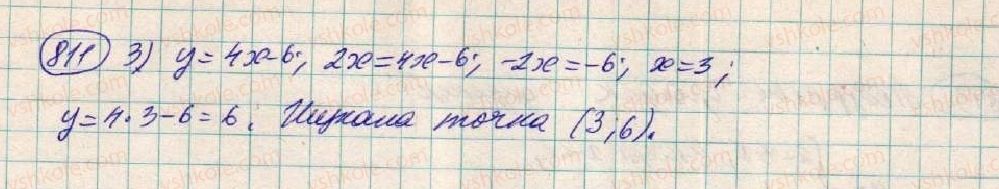 811 3) y = 4x-6; 2x = 4x-6; -2x = -6; x = 3;
y = 4·3-6 = 6. Шукана точка (3;6).
vshkole.com